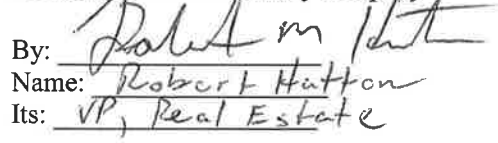 By: Robert M Hutton
Name: Robert Hutton
Its: VP, Real Estate